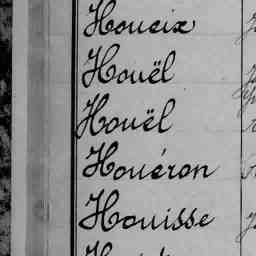 Houeix
Houël
Houël
Houéron
Houisse